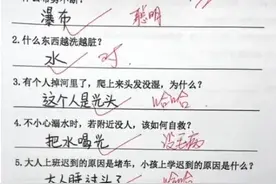 瀑布 聪明
2.什么东西越洗越脏?
水 对
3.有个人掉河里了,爬上来头发没湿,为什么?
这个人是光头 哈哈
4.不小心溺水时,若附近没人,该如何自救?
把水喝光 没毛病
5.大人上班迟到的原因是堵车,小孩上学迟到的原因是什么?
大人睡过头了 哈哈